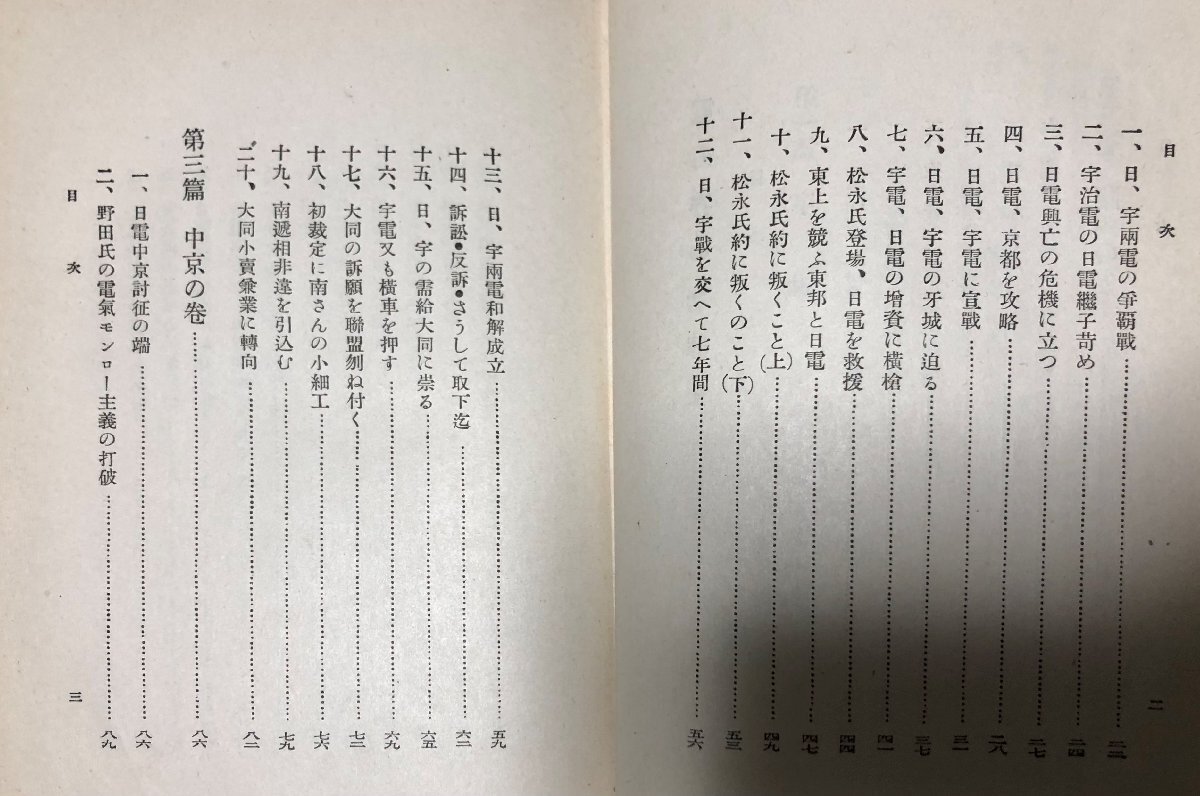 目次
一、日、宇兩電の爭覇戰……二三
二、宇治電の日電繼子苛め……二四
三、日電興亡の危機に立つ……二七
四、日電、京都を攻略……二八
五、日電、宇電に宣戰……三一
六、日電、宇電の牙城に迫る……三七
七、宇電、日電の增資に橫槍……四一
八、松永氏登場、日電を救援……四四
九、東上を競ふ東邦と日電……四七
十、松永氏約に叛くこと(上)……四九
十一、松永氏約に叛くのこと(下)……五三
十二、日、宇戰を交へて七年間……五六
二
十三、日、宇兩電和解成立……五九
十四、訴訟・反訴・さうして取下迄……六二
十五、日、宇の需給大同に祟る……六五
十六、宇電又も橫車を押す……六九
十七、大同の訴願を聯盟刎ね付く……七三
十八、初裁定に南さんの小細工……七六
十九、南遞相非違を引込む……七九
二十、大同小賣兼業に轉向……八二
第三篇 中京の卷……八六
一、日電中京討征の端……八六
二、野田氏の電氣モンロー主義の打破……八九
目次
三